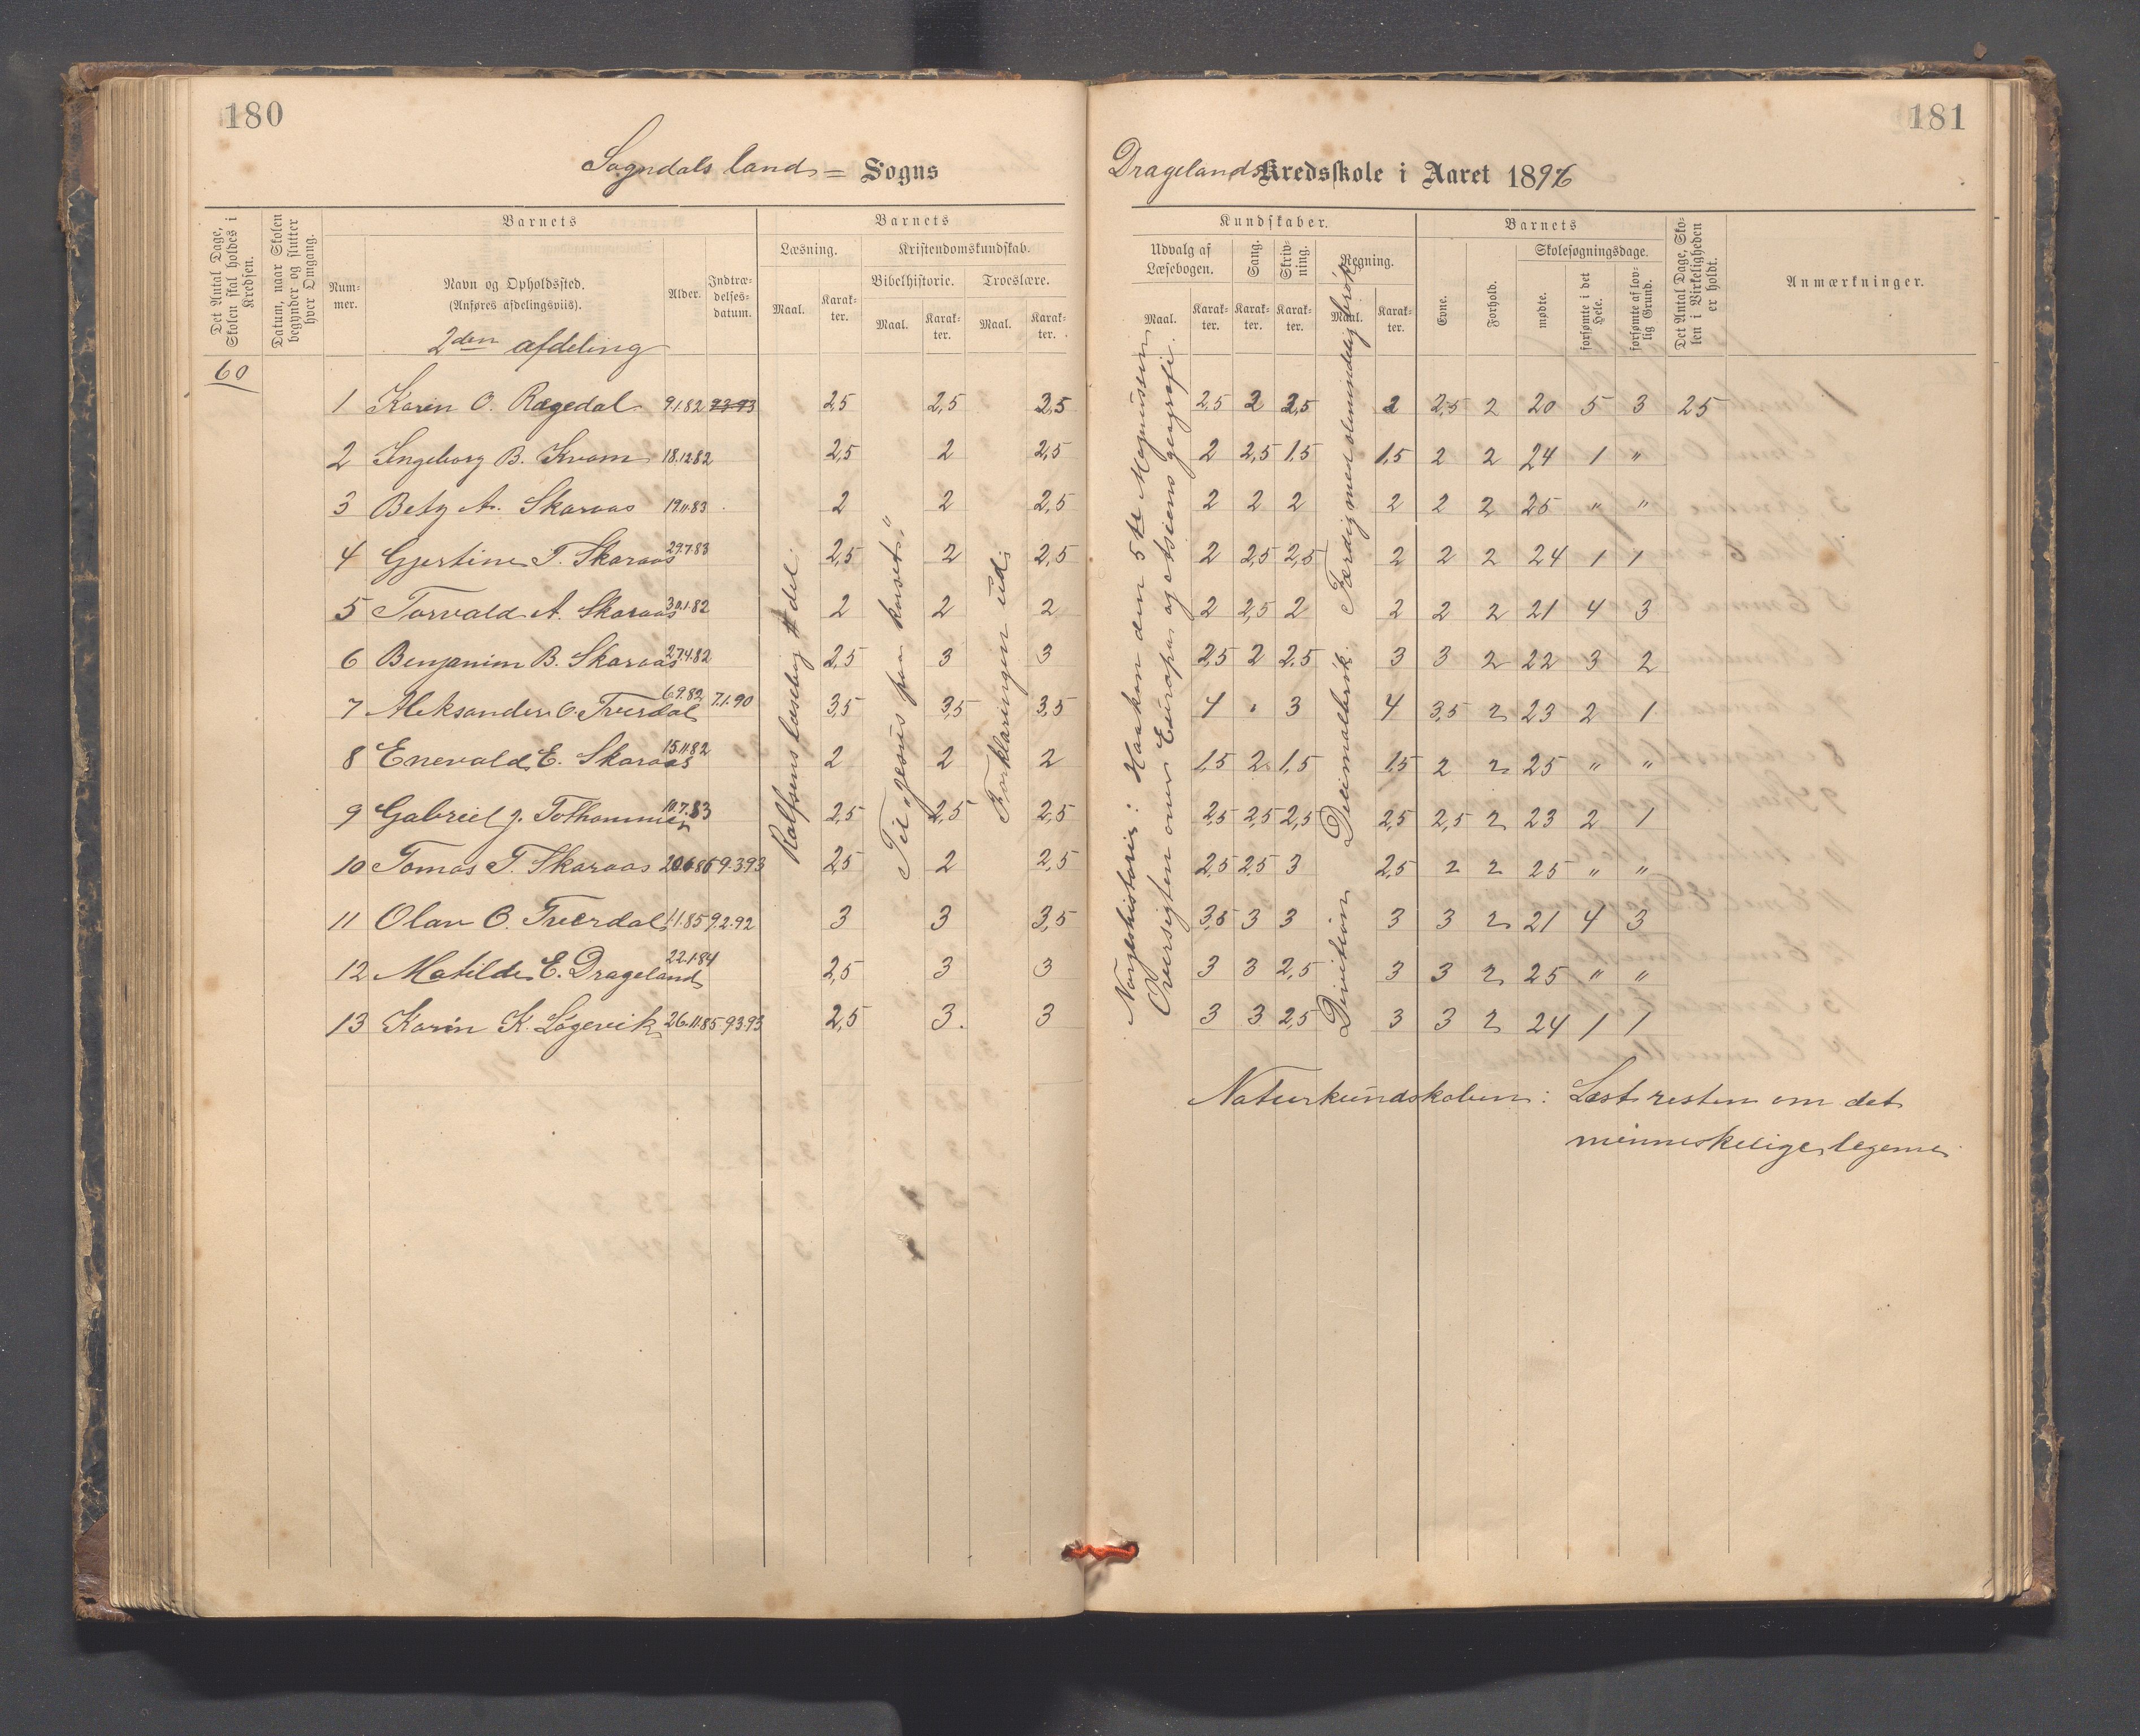 180
Sogndals land = Sogns
Det Antal Dage, Skolen skal holdes i Kredsen.
Datum, naar Skolen begynder og slutter hver Omgang.
Barnets
Nummer.
Navn og Opholdssted.
(Anføres afdelingsviis).
Alder.
Indtrædelsesdatum.
Barnets
Læsning.
Kristendomskundskab.
Bibelhistorie.
Troeslære.
Maal. Karakter. Maal. Karakter. Maal. Karakter.
2den afdeling
60
1 Karen O. Rægedal 9.1.82 9.3.93 2,5 2,5 2,5
2 Ingeborg B. Kvam 18.12.82 2,5 2 2,5
3 Bety A. Skaraas 19.11.83 2 2 2,5
4 Gjertine T. Skaraas 29.7.83 2,5 2 2,5
5 Torvald A. Skaraas 30.1.82 2 2 2
6 Benjanim B. Skaraas 27.4.82 2,5 3 3
7 Aleksander O. Tverdal 6.9.82 7.1.90 3,5 3,5 3,5
8 Enevald E. Skaraas 15.11.82 2 2 2
9 Gabriel J. Tothammer 10.7.83 2,5 2,5 2,5
10 Tomas T. Skaraas 20.6.86 9.3.93 2,5 2 2,5
11 Olav O. Tverdal 1.1.85 9.2.92 3 3 3,5
12 Matilde E. Drageland 22.1.84 2,5 3 3
13 Karin K. Løgevik 26.11.85 9.3.93 2,5 3. 3
Rolfsens læsebog # del.
Til "Jesus paa korset."
Forklaringen ud.
181
Dragelands Kredsskole i Aaret 1896
Kundskaber.
Udvalg af Læsebogen.
Sang.
Skrivning.
Regning.
Maal. Karakter. Karakter. Karakter. Maal. Karakter.
Barnets
Evne.
Forhold.
Skolesøgningsdage.
mødte.
forsømte i det Hele.
forsømte af lovlig Grund.
Det Antal Dage, Skolen i Virkeligheden er holdt.
Anmærkninger.
2,5 2 2,5 2 2,5 2 20 5 3 25
2 2,5 1,5 1,5 2 2 24 1 "
2 2 2 2 2 2 25 " "
2 2,5 2,5 2 2 2 24 1 1
2 2,5 2 2 2 2 21 4 3
2,5 2 2,5 3 3 2 22 3 2
4 " 3 4 3,5 2 23 2 1
1,5 2 1,5 1,5 2 2 25 " "
2,5 2,5 2,5 2,5 2,5 2 23 2 1
2,5 2,5 3 2,5 2 2 25 " "
3,5 3 3 3 3 2 21 4 3
3 3 2,5 3 3 2 25 " "
3 3 2,5 3 3 2 24 1 1
Norgeshistorie: Haakon den 5te Magnussen
Oversigten over Europas og Asiens geografi.
Færdig med almindelig brøk.
Divition Decimalbrøk.
Naturkundskaben: Læst resten om det
menneskelige legeme.